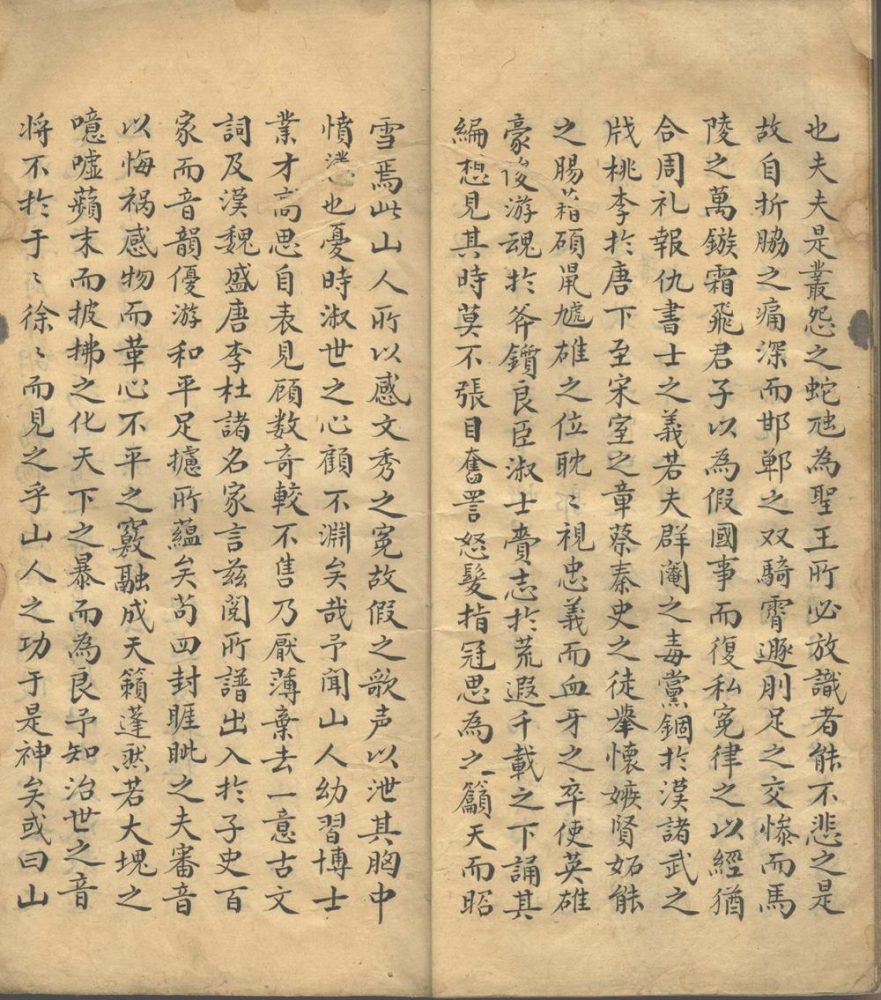 也夫夫是叢怨之蛇虺為聖王所必放識者能不悲之是
故自折脇之痛深而邯郸之双騎霄遯刖足之交惨而馬
陵之萬鏃霜飛君子以為假國事而復私寃律之以經猶
合周礼報仇書士之義若夫群阉之毒黨錮於漢諸武之
戕桃李於唐下至宋室之章蔡秦史之徒擧懷嫉賢妬能
之腸蓄碩鼠尯雄之位眈〻視忠義而血牙之卒使英雄
豪俊游魂於斧鑕良臣淑士賫志於荒遐千載之下誦其
編想見其時莫不張目奮詈怒髮指冠思為之籲天而昭
雪焉此山人所以感文秀之寃故假之歌声以泄其胸中
憤懣也憂時淑世之心顧不淵矣哉予聞山人幼習博士
業才高思自表見顧数奇較不售乃厭薄棄去一意古文
詞及漢魏盛唐李杜諸名家言兹閱所譜出入於子史百
家而音韻優游和平足攄所蘊矣苟四封睚眦之夫審音
以悔禍感物而革心不平之竅融成天籟蓬然若大塊之
噫嘘蘋末而披拂之化天下之暴而為良予知治世之音
将不於于〻徐〻而見之乎山人之功于是神矣或曰山